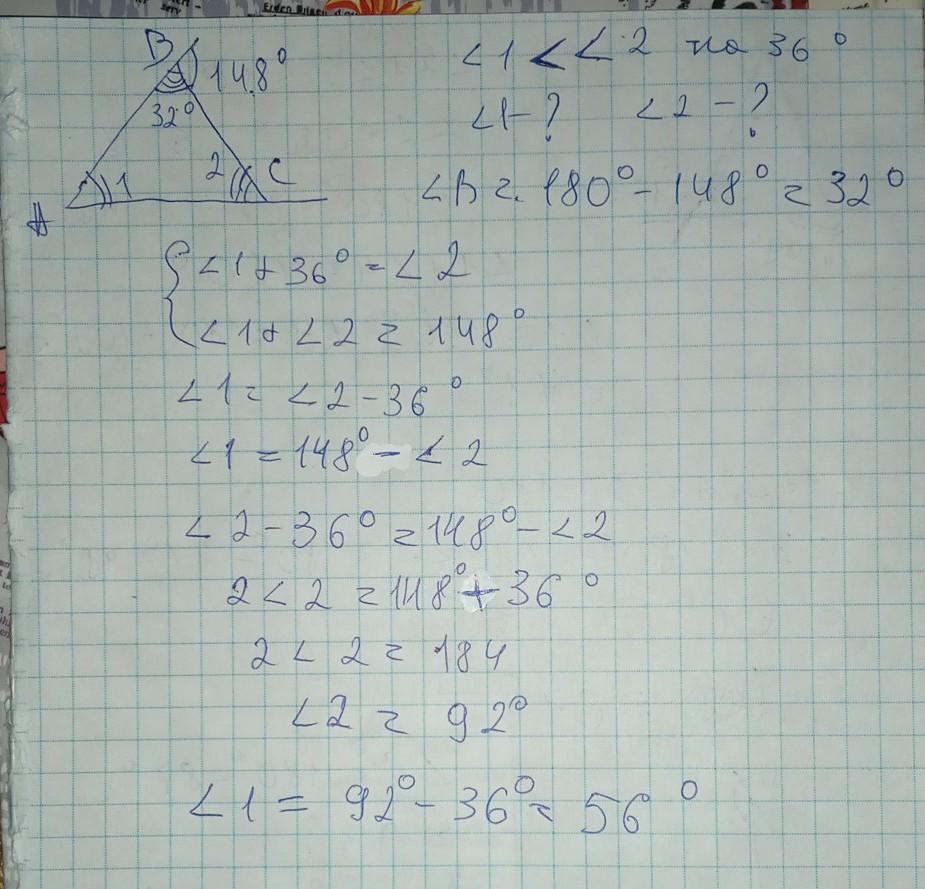 B 148°
32°
A 1 2 C
∠1 < ∠2 на 36°
∠1 - ? ∠2 - ?
∠B = 180° - 148° = 32°
{ ∠1 + 36° = ∠2
∠1 + ∠2 = 148°
∠1 = ∠2 - 36°
∠1 = 148° - ∠2
∠2 - 36° = 148° - ∠2
2∠2 = 148° + 36°
2∠2 = 184
∠2 = 92°
∠1 = 92° - 36° = 56°